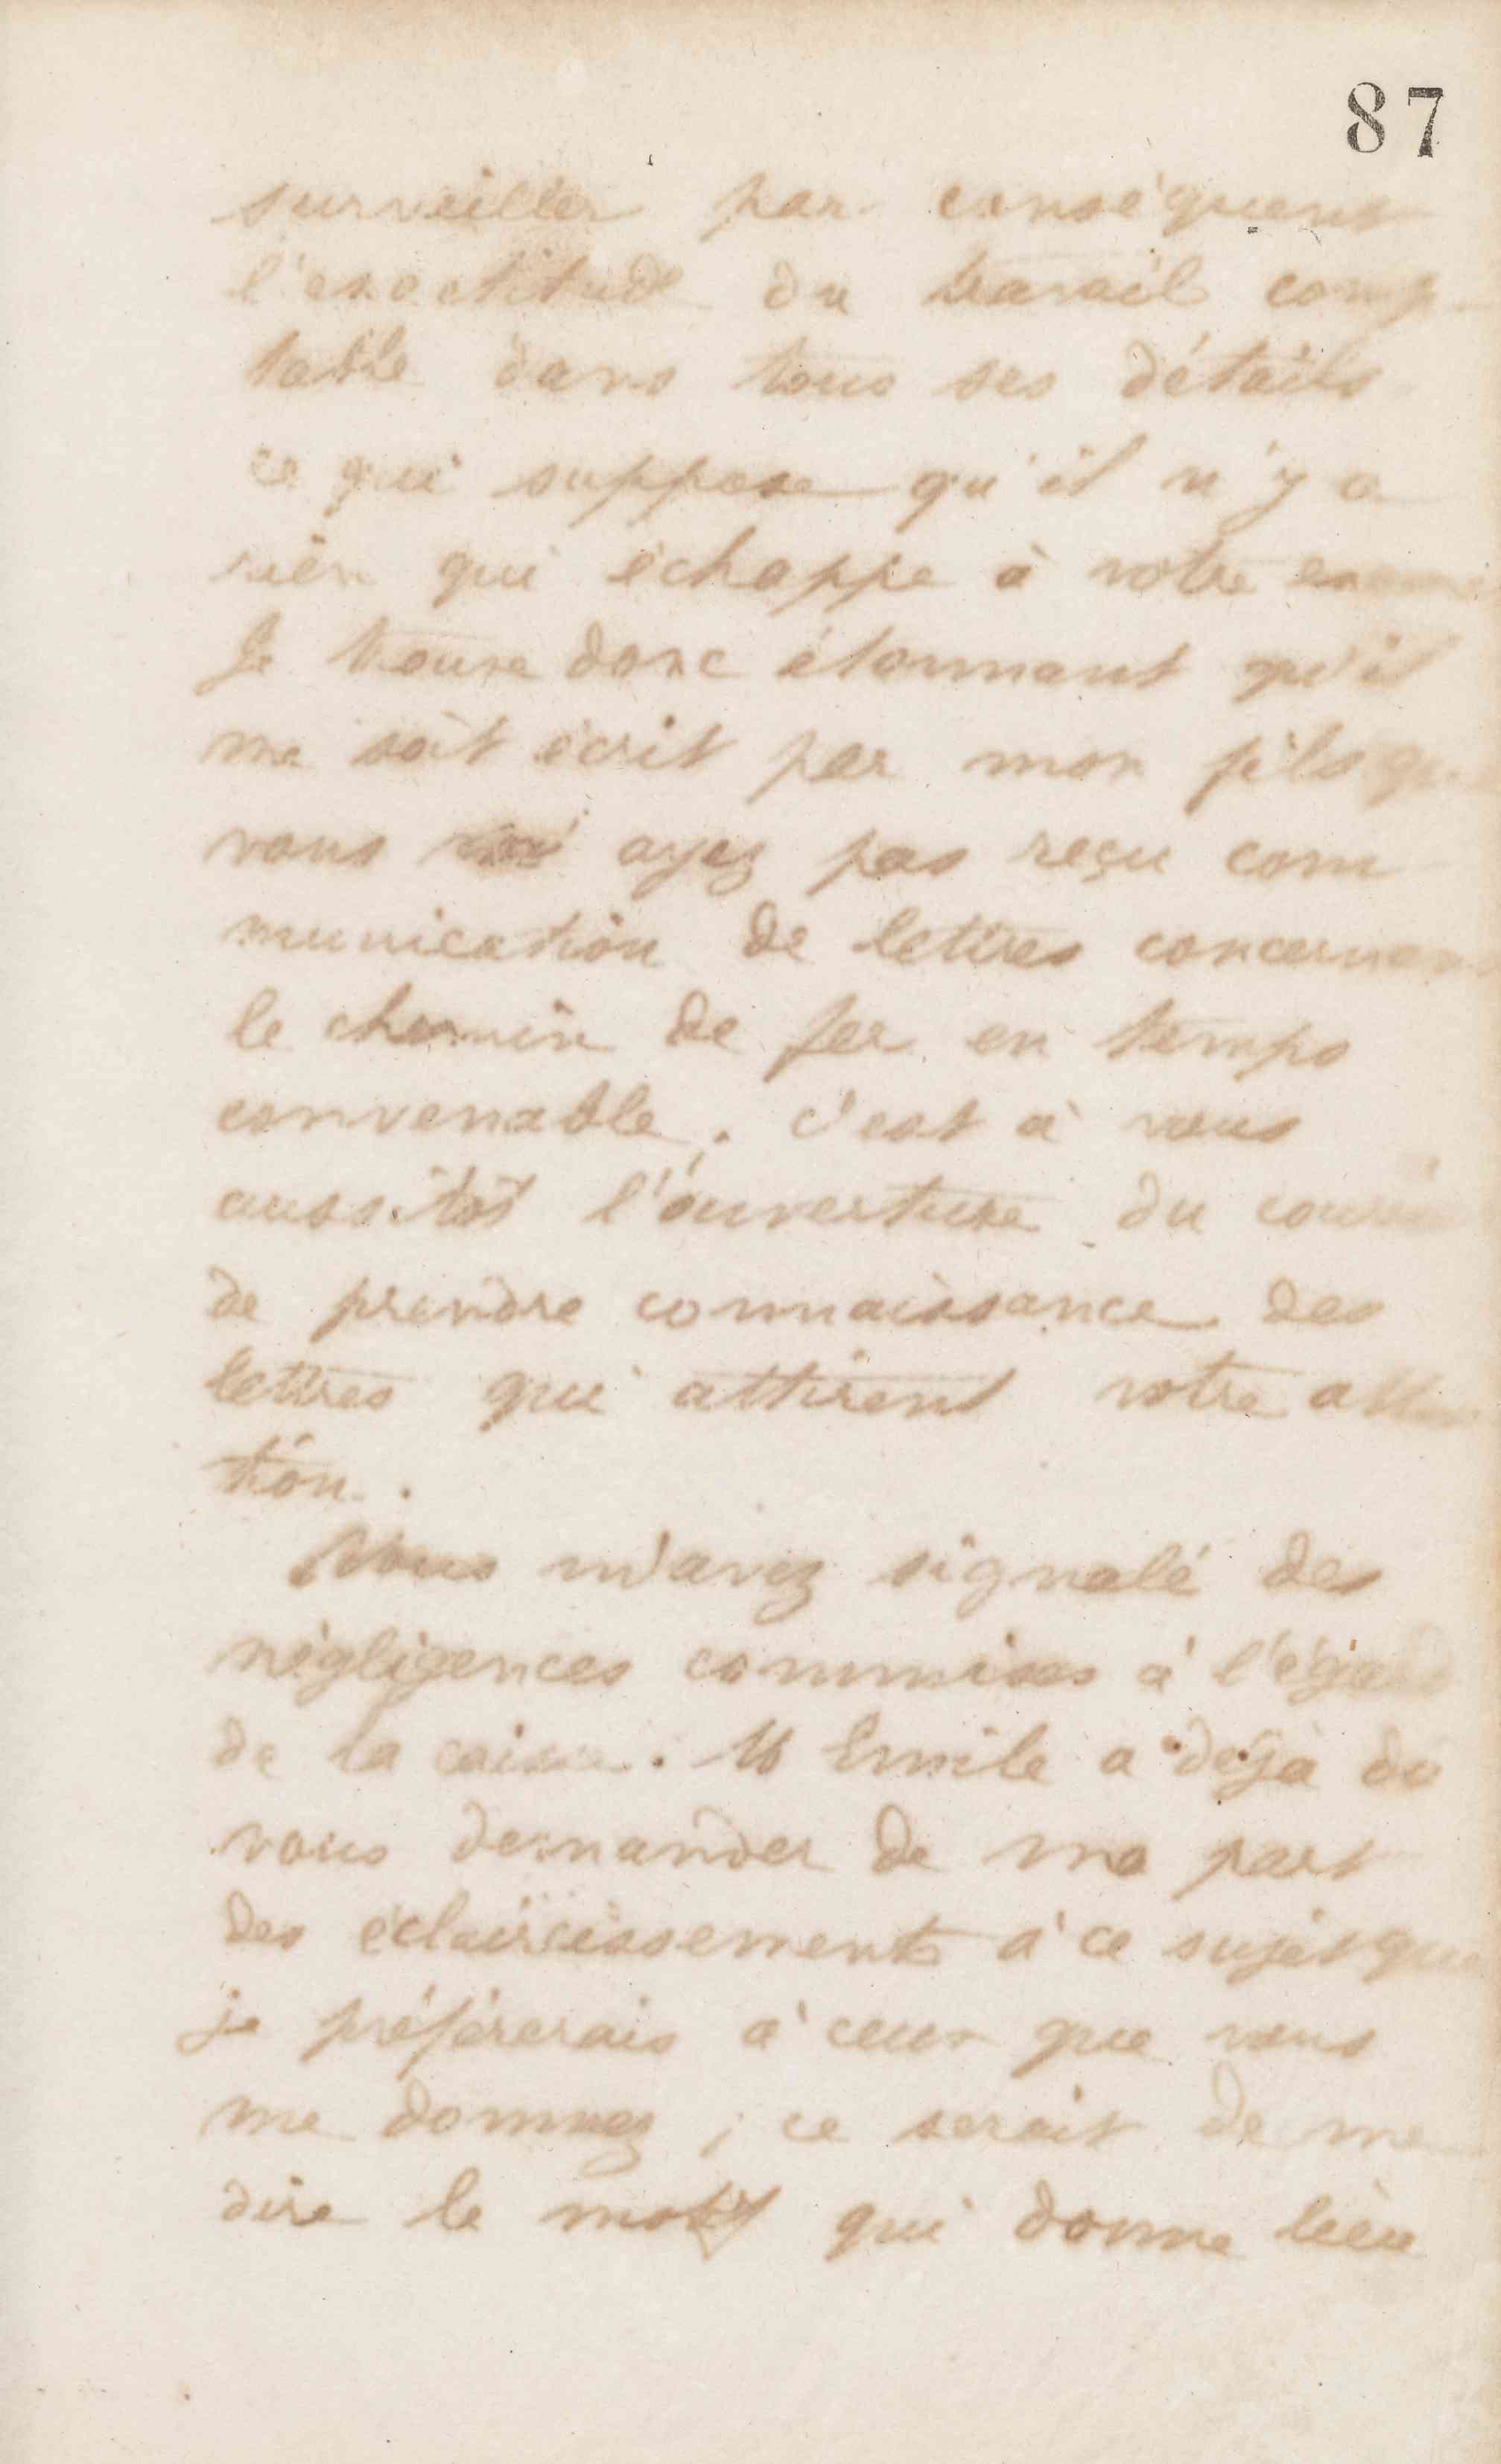 87
surveiller par conséquent
l'exactitude du travail comp-
table dans tous ses détails
ce qui suppose qu'il n'y a
rien qui échappe à votre examen
Je trouve donc étonnant qu'il
me soit écrit par mon fils que
vous ayez pas reçu com
munication de lettres concernant
le chemin de fer en temps
convenable ; c'est à vous
aussitôt l'ouverture du courrier
de prendre connaissance des
lettres qui attirent votre atten
tion.
Vous m'avez signalé des
négligences commises à l'égard
de la caisse. M Emile a déjà dû
vous demander de ma part
des éclaircissements à ce sujet que
je préférerais à ceux que vous
me donnez ; ce serait de me
dire le motif qui donne lieu